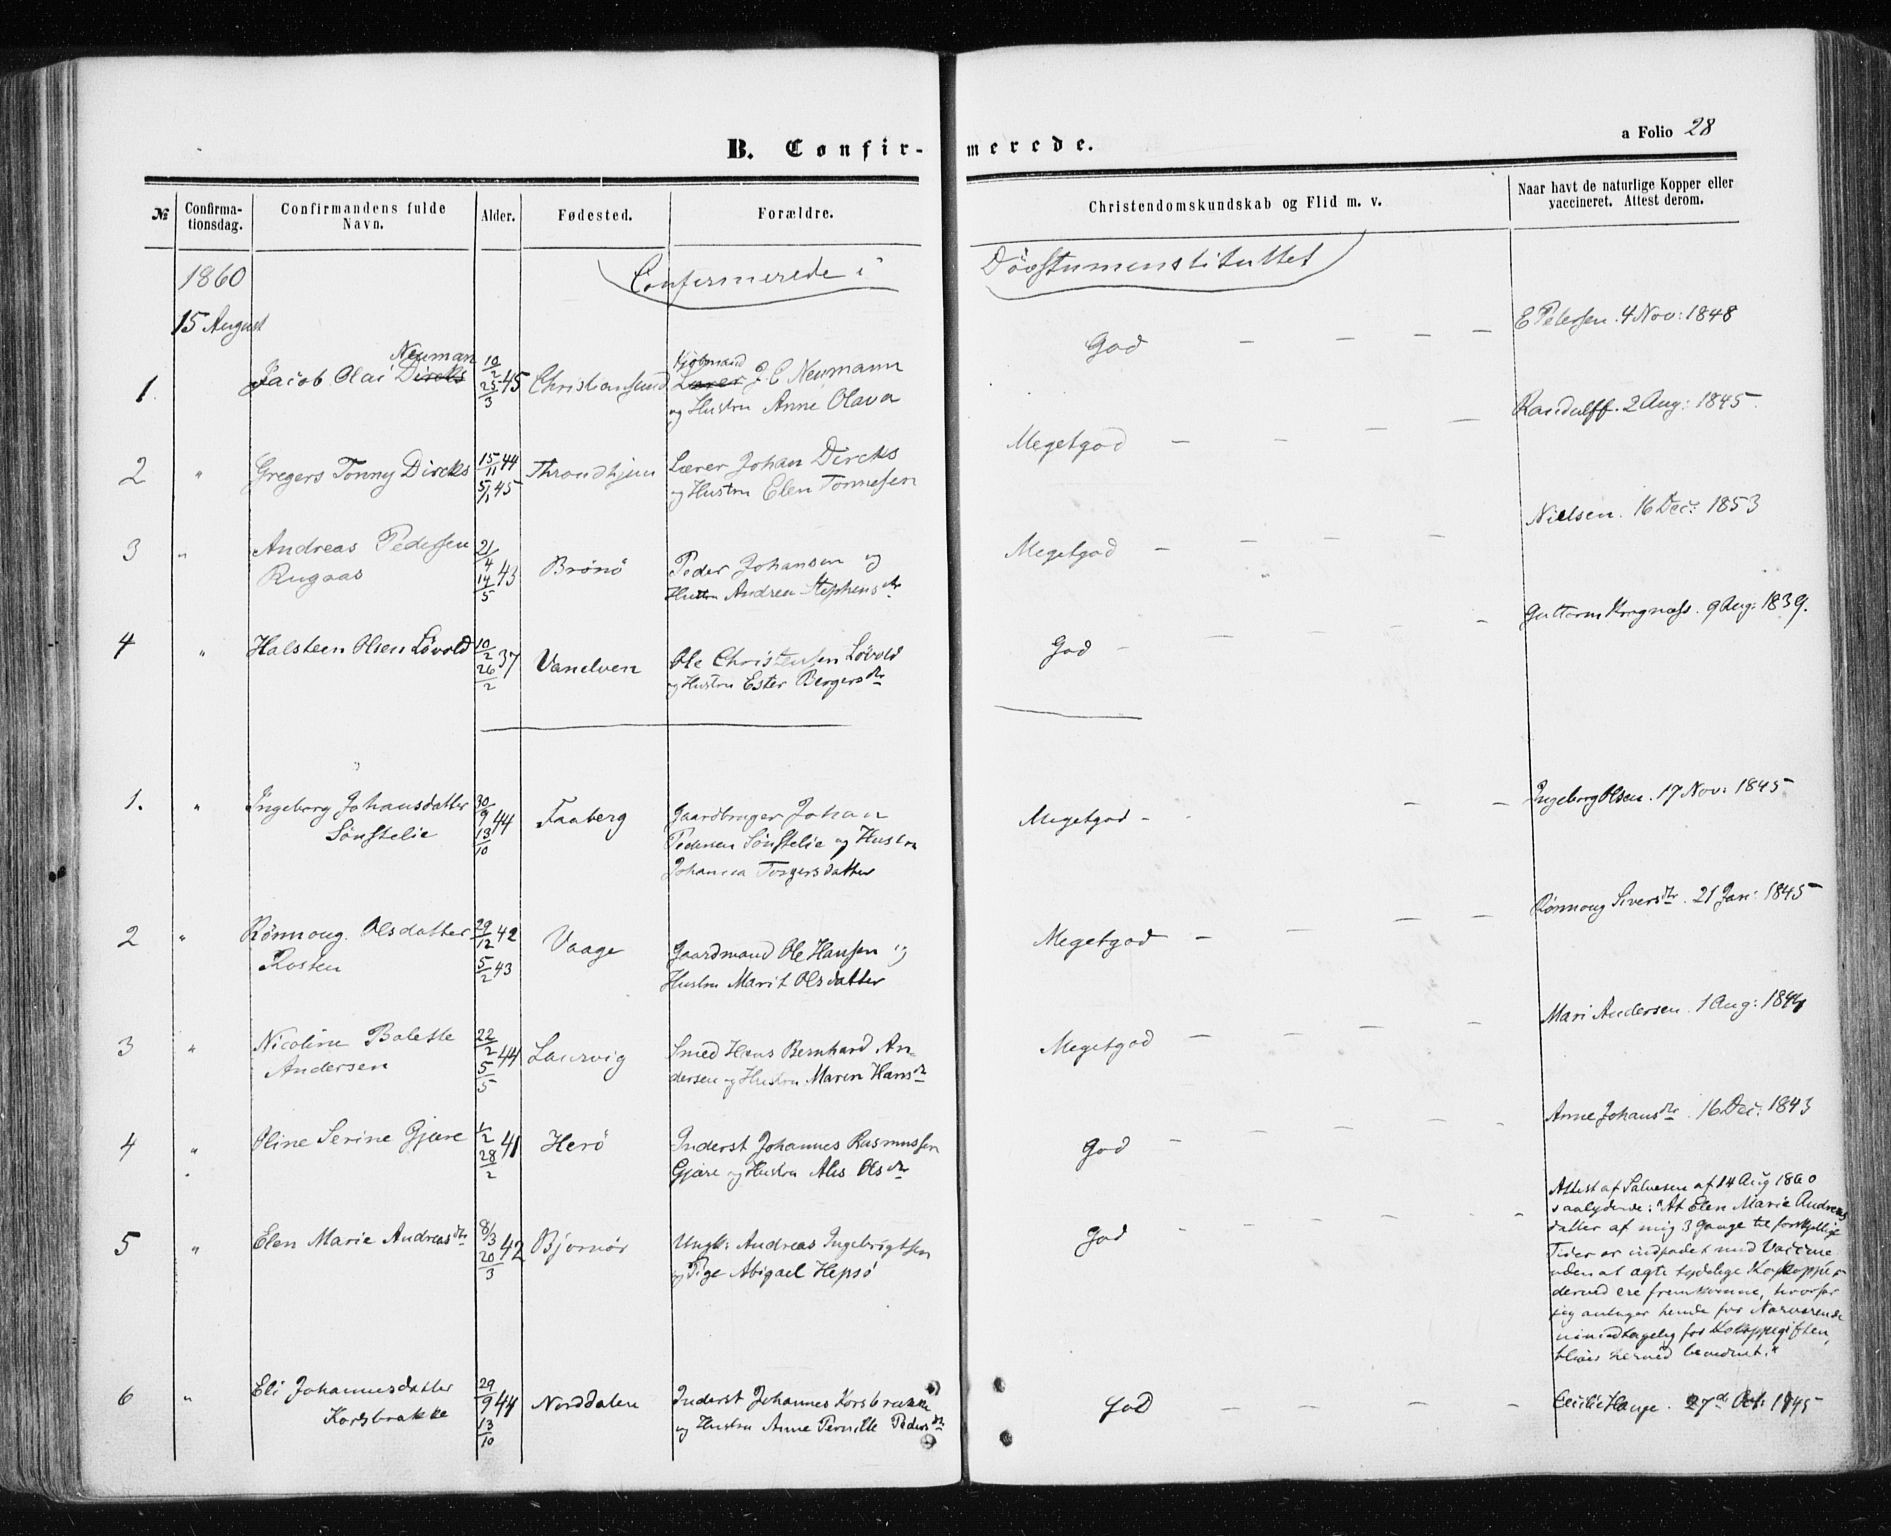 B. Confir-merede.
a Folio 28
№ Confirma-tionsdag. Confirmandens fulde Navn. Alder. Fødested. Forældre. Christendomskundskab og Flid m. v. Naar havt de naturlige Kopper eller vaccineret. Attest derom.
1860 Confirmerede i Døvstumenstituttet
15 August
E Petersen. 4 Nov: 1848
Neuman Kjøbmand
1. Jacob Olai Dircks 10/2 45 Christiansund Lærer J. C Neumann God
25/3 og Hustru Anne Olava
Randulff. 2 Aug: 1845.
2 " Gregers Tonny Dircks 15/11 44 Throndhjem Lærer Johan Dircks Megetgod
5/1 45 og Hustru Elen Tonnesen
Nielsen. 16 Dec: 1853
3 " Andreas Pedersen 21/4 43 Brønø Peder Johansen og Megetgod
Rugaas 14/5 Hustru Andrea Stephensdtr
Guttorm Krognæss. 9 Aug: 1839.
4 " Halsteen Olsen Løvold 10/2 37 Vanelven Ole Christensen Løvold God
26/2 og Hustru Ester Bergersdtr
Ingeborg Olsen. 17 Nov: 1845
1. " Ingeborg Johansdatter 30/9 44 Faaberg Gaardbruger Johan Megetgod
Sønstelie 13/10 Pedersen Sønstelie og Hustru
Johanna Torgersdatter
Rønnoug Siversdtr. 21 Jan: 1845
2 " Rønnoug Olsdatter 29/12 42 Vaage Gaardmand Ole Hansen og Megetgod
Rosten 5/2 43 Hustru Marit Olsdatter
Mari Andersen. 1 Aug: 1844
3 " Nicoline Bolette 22/2 44 Laurvig Smed Hans Bernhard An- Megetgod
Andersen 5/5 dersen og Hustru Maren Hansdtr
Anne Johansdtr. 16 Dec: 1843
4 " Oline Serine Gjære 1/2 41 Herø Inderst Johannes Rasmussen God
28/2 Gjære og Hustru Ales Olsdtr
Attest af Salvesen af 14 Aug 1860
saalydende: "At Elen Marie Andreas
datter af mig 3 Gange til forskjellige
5 " Elen Marie Andreasdtr 8/3 42 Bjørnør Ungk: Andreas Ingebrigtsen God
20/3 og Pige Abigael Hepsø
Tider er indpodet med Vaccine
uden at ægte tydelige Kokopper
derved ere fremkomne, hvorfor
jeg antager hende for Nærværende
uimodtagelig for Kokoppegiften,
bliver herved bevidnet."
6 " Eli Johannesdatter 29/9 44 Norddalen Inderst Johannes Korsbrække God Cecilie Hauge. 27d Oct: 1845
Korsbrække 13/10 og Hustru Anne Pernille Pedersdtr